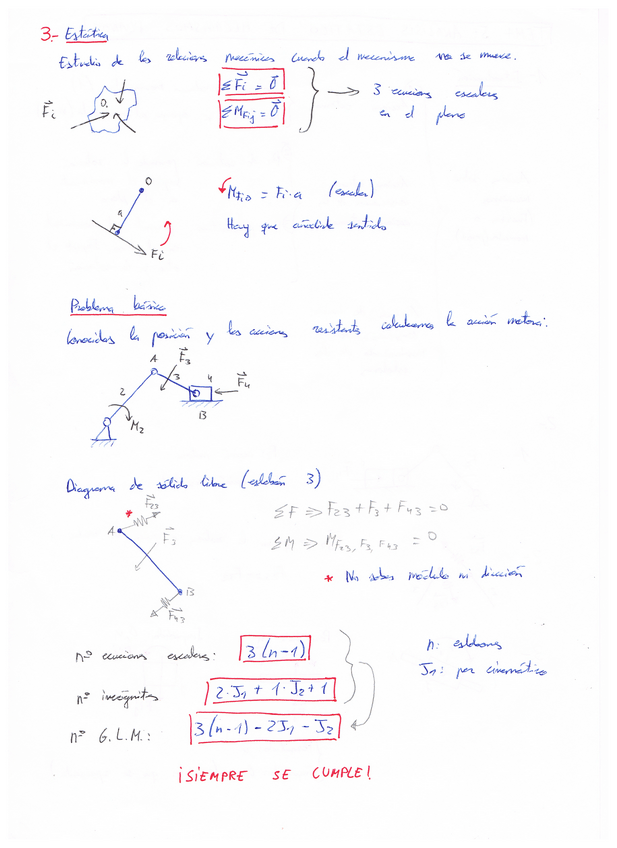 3.- Estática
Estudio de las relaciones mecánicas cuando el mecanismo no se mueve.
F⃗i
O.
ΣF⃗i = 0⃗
ΣM⃗Fij = 0⃗
→ 3 ecuaciones escalares
en el plano
O
a
Fi
MFiO = Fi·a (escalar)
Hay que añadirle sentido
Problema básico
Conocidas la posición y las acciones resistentes calculamos la acción motora:
A
F⃗3
3
4
F⃗4
2
B
M2
Diagrama de sólido libre (eslabón 3)
F⃗23
*
A
F⃗3
B
F⃗43
ΣF ⇒ F23 + F3 + F43 = 0
ΣM ⇒ MF23, F3, F43 = 0
* No sabes módulo ni dirección
nº ecuaciones escalares: 3(n-1)
nº incógnitas 2·J1 + 1·J2 + 1
nº G.L.M.: 3(n-1) - 2J1 - J2
n: eslabones
J1: par cinemático
¡SIEMPRE SE CUMPLE!